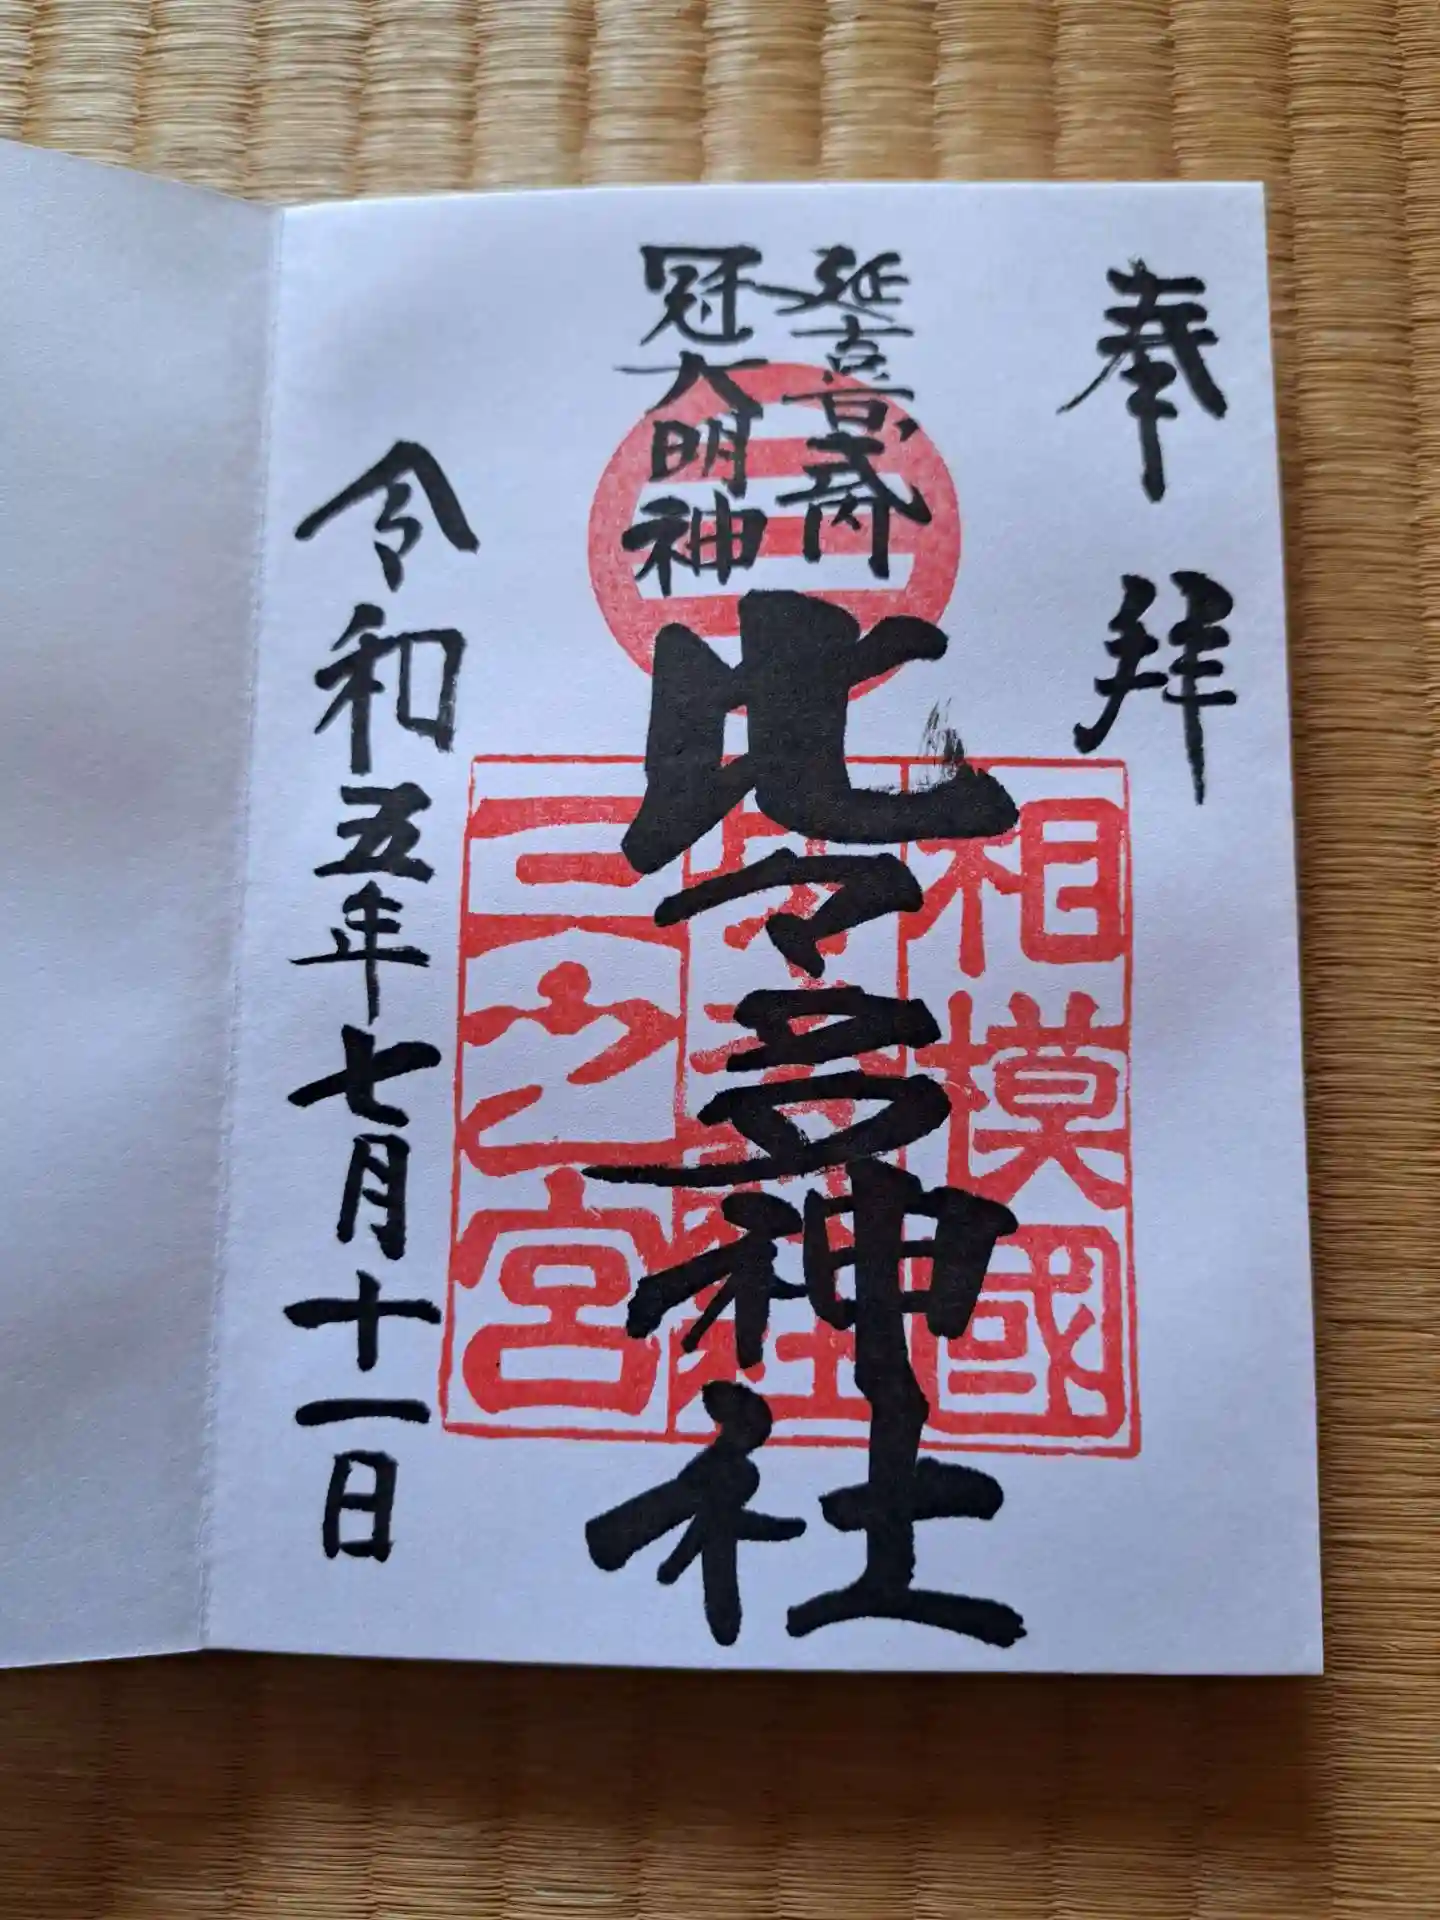 奉拝
延喜式内
冠大明神
比々多神社
相模國
三之宮
令和五年七月十一日